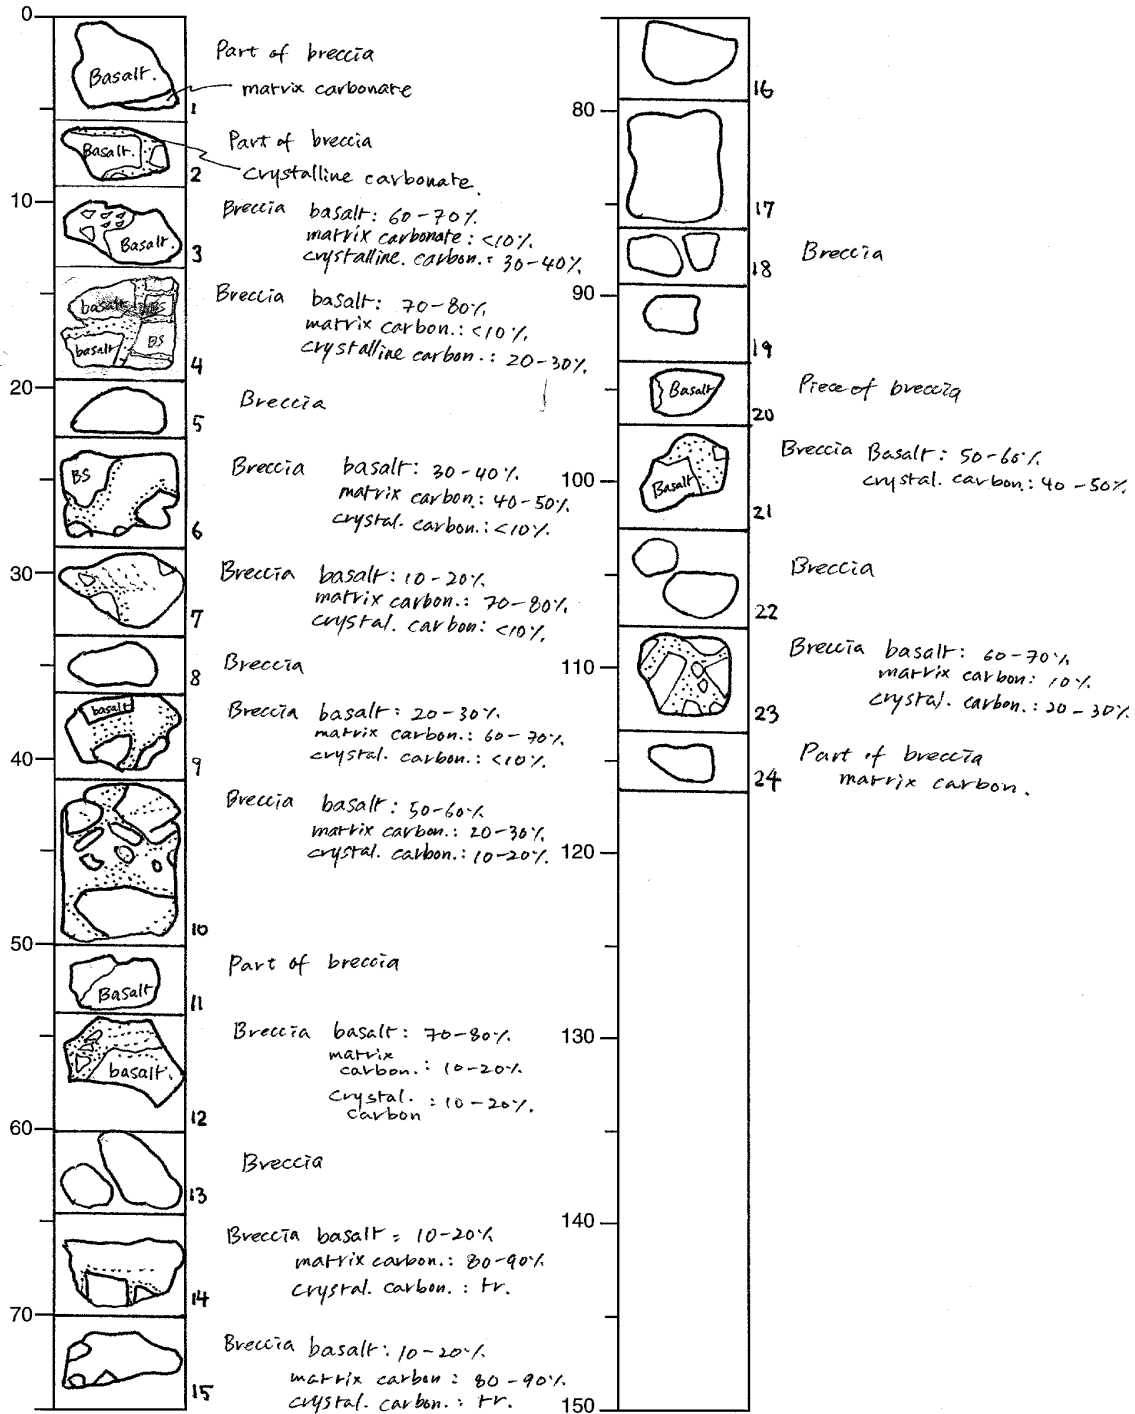 0
Basalt.
Part of breccia
matrix carbonate
1
Basalt.
Part of breccia
Crystalline carbonate.
2
10
Basalt.
Breccia basalt: 60-70%.
matrix carbonate: <10%.
crystalline. carbon.: 30-40%.
3
basalt
BS
basalt
BS
Breccia basalt: 70-80%.
matrix carbon.: <10%.
crystalline carbon.: 20-30%.
4
20
Breccia
5
BS
Breccia basalt: 30-40%.
matrix carbon.: 40-50%.
crystal. carbon.: <10%.
6
30
Breccia basalt: 10-20%.
matrix carbon.: 70-80%.
crystal. carbon: <10%.
7
Breccia
8
basalt
Breccia basalt: 20-30%.
matrix carbon.: 60-70%.
crystal. carbon.: <10%.
9
40
Breccia basalt: 50-60%.
matrix carbon.: 20-30%.
crystal. carbon.: 10-20%.
10
50
Basalt
Part of breccia
11
basalt.
Breccia basalt: 70-80%.
matrix
carbon.: 10-20%.
Crystal.
carbon : 10-20%.
12
60
Breccia
13
Breccia basalt: 10-20%.
matrix carbon.: 80-90%.
crystal. carbon.: tr.
14
70
Breccia basalt: 10-20%.
matrix carbon: 80-90%.
crystal. carbon.: tr.
15
16
80
17
Breccia
18
90
19
Basalt
Piece of breccia
20
Basalt
Breccia Basalt: 50-60%.
crystal. carbon.: 40-50%.
100
21
Breccia
22
110
Breccia basalt: 60-70%.
matrix carbon: 10%.
crystal. carbon.: 20-30%.
23
Part of breccia
matrix carbon.
24
120
130
140
150